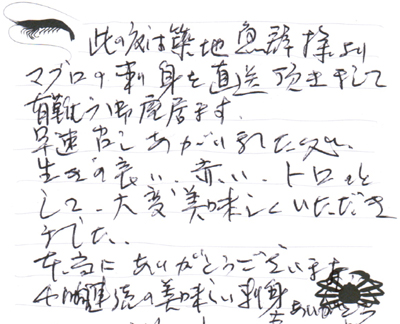 此の度は築地魚群様より
マグロの刺身を直送頂きまして
有難う御座居ます.
早速召しあがりました処、
生きの良い、赤い、トロっと
して、大変美味しくいただき
ました、
本当にありがとうございます、
の美味しい刺身
ありがとう